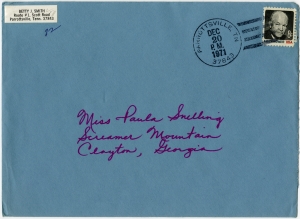 BETTY J. SMITH
Route #1, Scott Road
Parrottsville, Tenn. 37843
PARROTTSVILLE, TN
DEC
20
P.M.
1971
37843
Miss Paula Snelling
Screamer Mountain
Clayton, Georgia